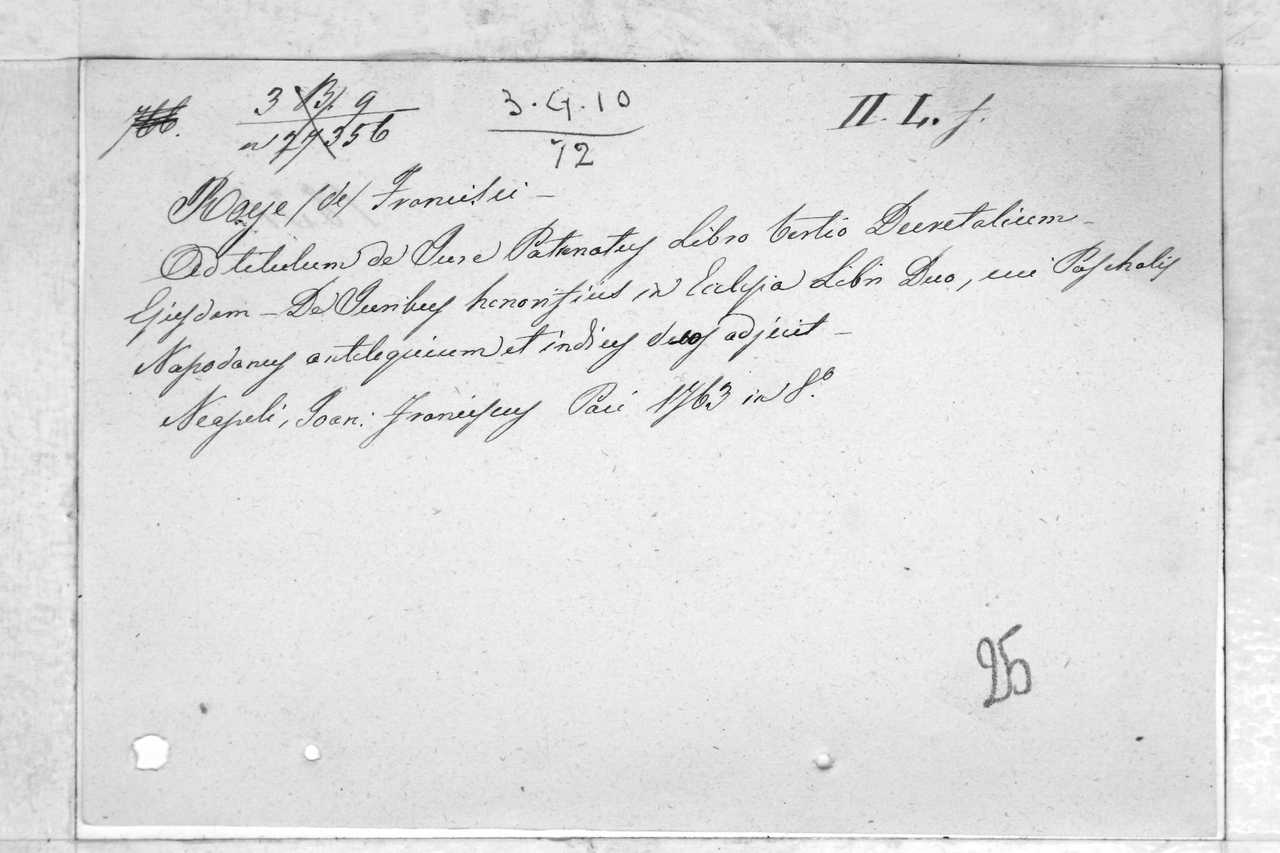 766.
3 B 9
n 27356
3.G.10
12
II. L. f.
Roye /de/ Francisci -
Ad titulum de Jure Patronatus Libro tertio Decretalium -
Ejusdem - De Juribus honorificis in Eclesia Libri Duo, cui Paschalis
Napodanus anteloquium et indices duos adjecit -
Neapoli, Joan: Franciscus Paci 1763 in 8.º
25